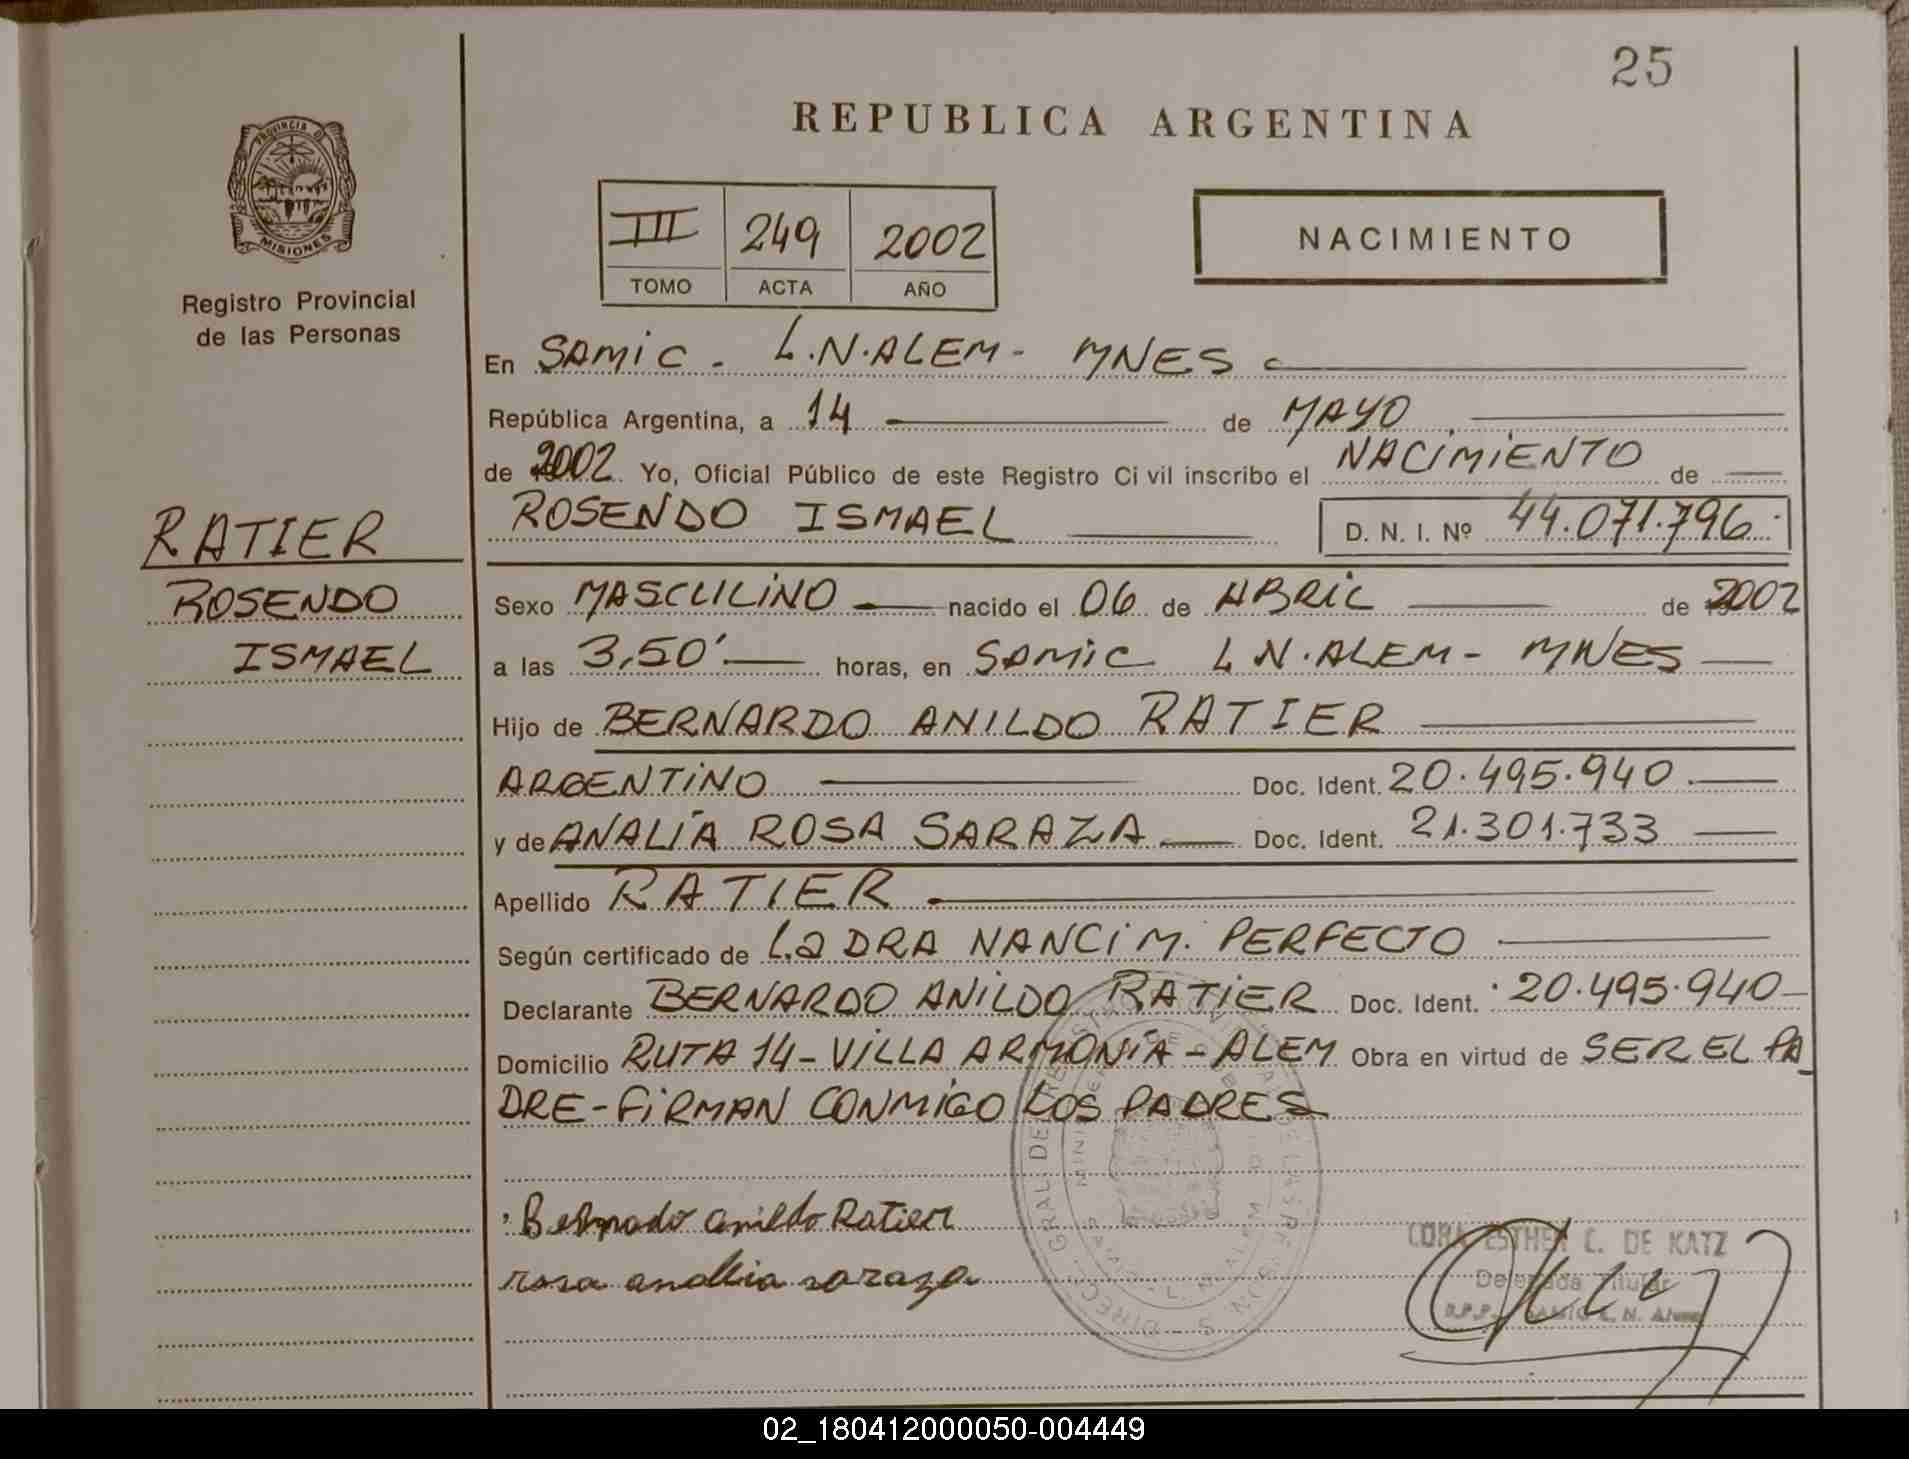 25
REPUBLICA ARGENTINA
PROVINCIA DE
MISIONES
Registro Provincial
de las Personas
III 249 2002
TOMO ACTA AÑO
NACIMIENTO
En SAMIC - L.N.ALEM - MNES
República Argentina, a 14 de MAYO
de 2002 Yo, Oficial Público de este Registro Civil inscribo el NACIMIENTO de
ROSENDO ISMAEL D. N. I. Nº 44.071.796
RATIER
ROSENDO
ISMAEL
Sexo MASCULINO nacido el 06 de ABRIL de 2002
a las 3,50' horas, en SAMIC L N.ALEM - MNES
Hijo de BERNARDO ANILDO RATIER
ARGENTINO Doc. Ident. 20.495.940
y de ANALÍA ROSA SARAZA Doc. Ident. 21.301.733
Apellido RATIER
Según certificado de La DRA NANCI M. PERFECTO
Declarante BERNARDO ANILDO RATIER Doc. Ident. 20.495.940
Domicilio RUTA 14 - VILLA ARMONÍA - ALEM Obra en virtud de SER EL PA
DRE - FIRMAN CONMIGO LOS PADRES
Bernado anildo Ratier
rosa analia saraza
CORA ESTHER C. DE KATZ
Delegada Titular
SAMIC L. N. Alem
02_180412000050-004449